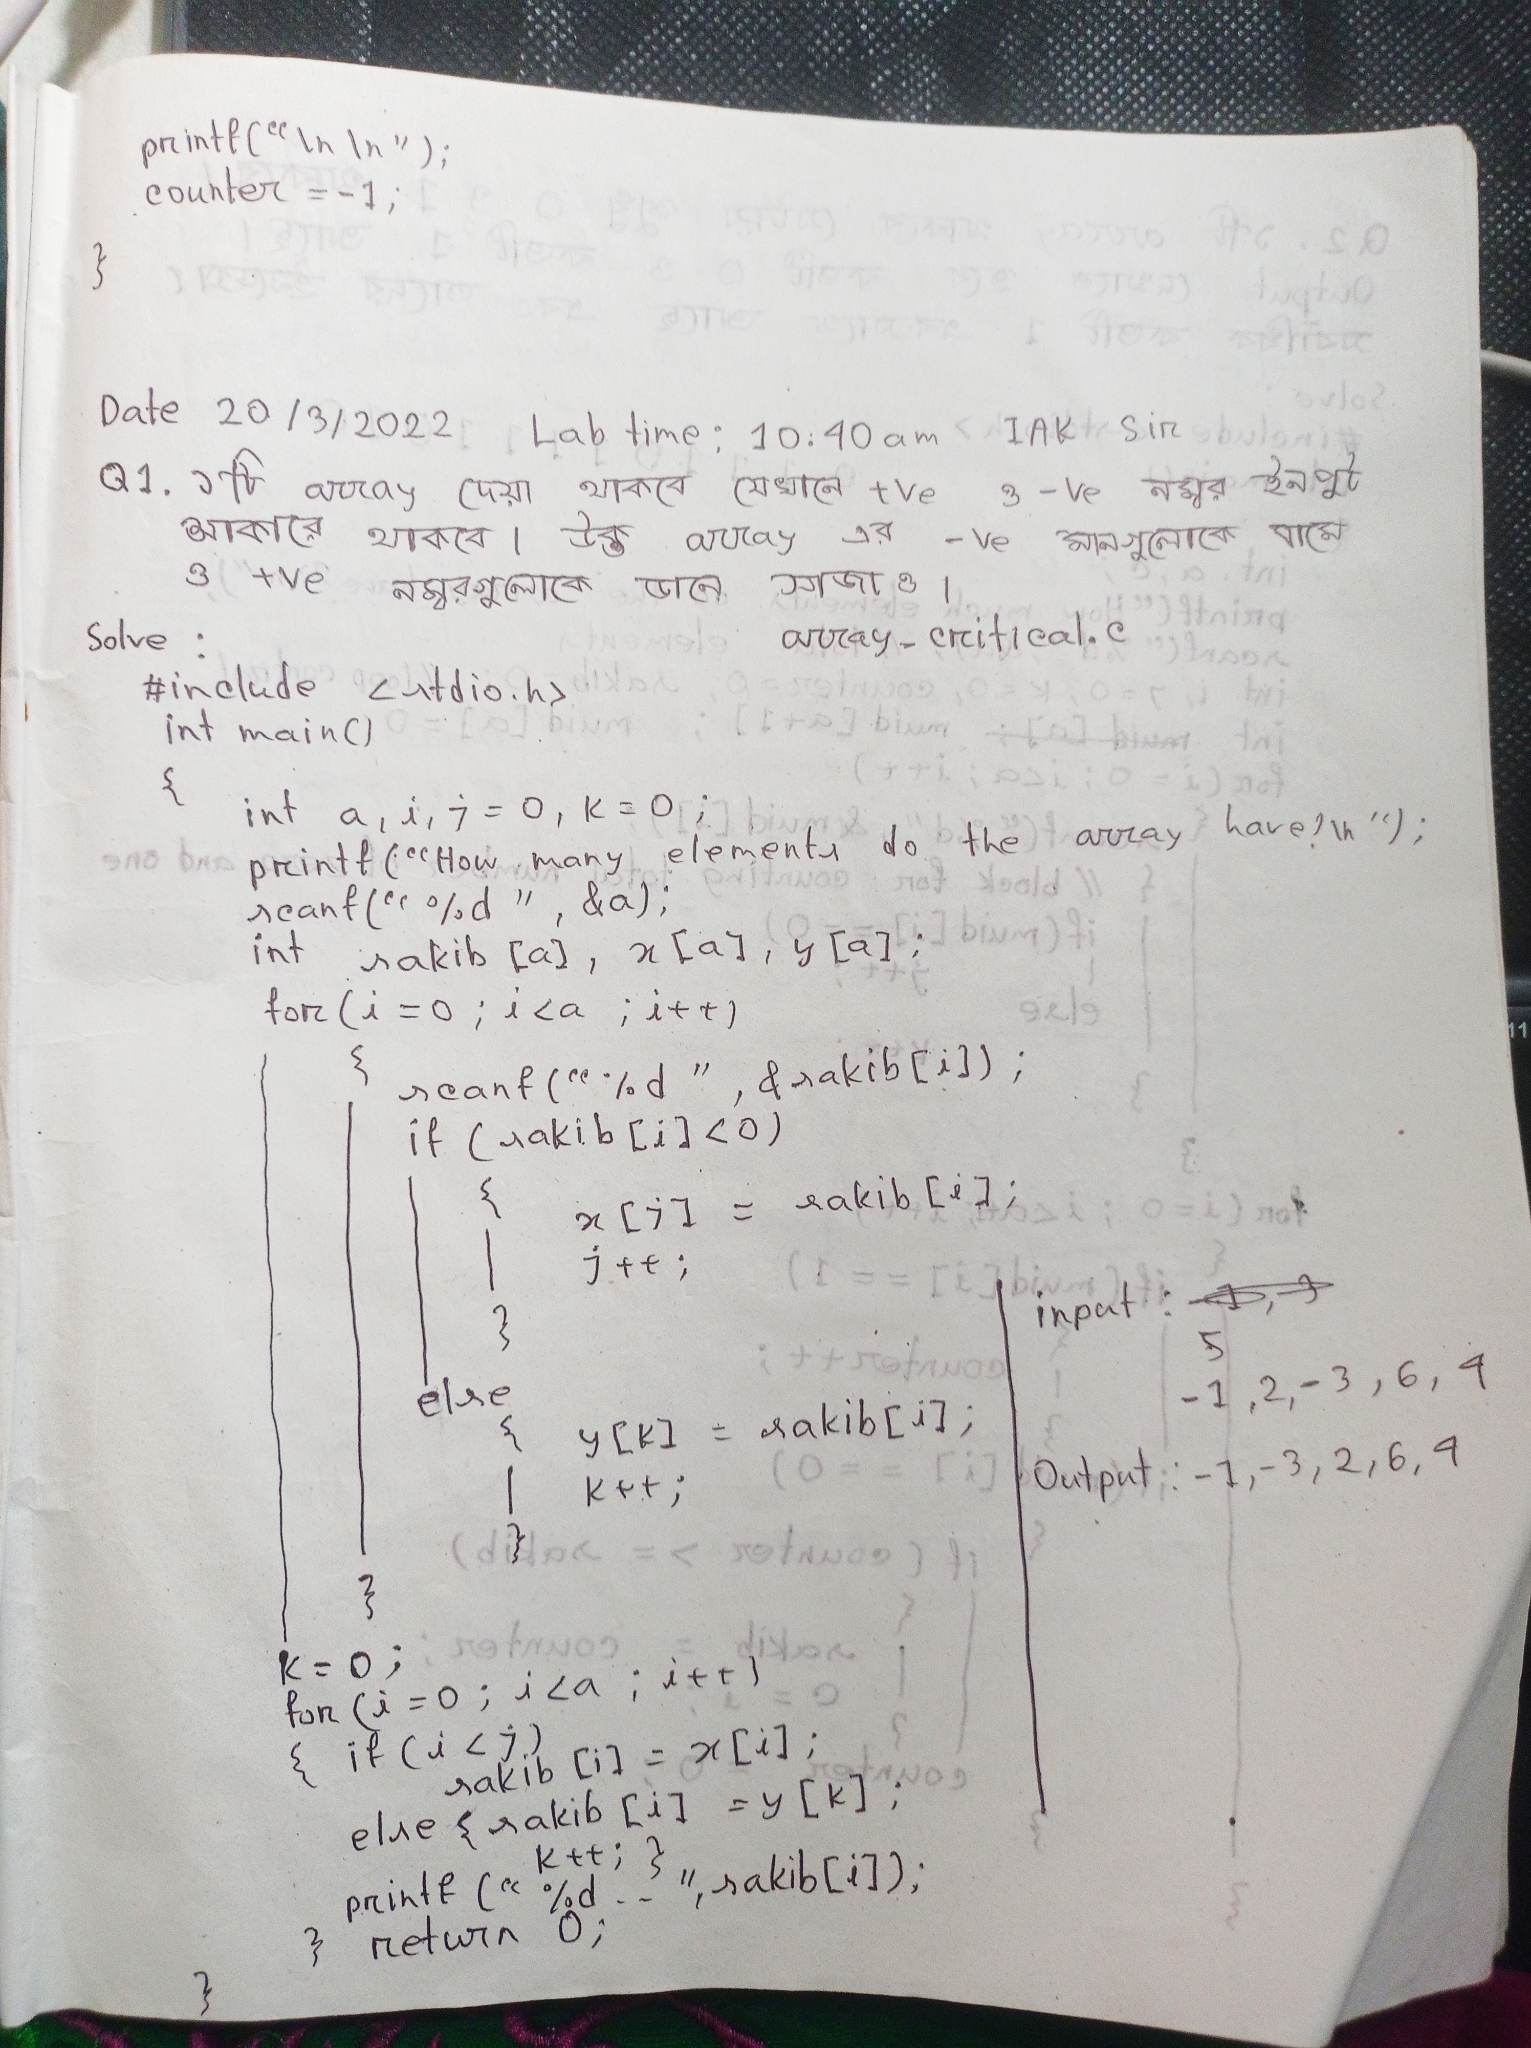 printf("\n \n");
counter = -1;
}
Date 20/3/2022 Lab time: 10:40am IAK Sir
Q1. ১টি array দেয়া থাকবে যেখানে +ve ও -ve নম্বর ইনপুট
আকারে থাকবে। উক্ত array এর -ve মানগুলোকে বামে
ও +ve নম্বরগুলোকে ডানে সাজাও।
Solve :
array_critical.c
#include <stdio.h>
int main()
{
int a, i, j = 0, k = 0;
printf("How many elements do the array have?\n");
scanf("%d", &a);
int sakib [a], x[a], y[a];
for(i = 0; i<a ; i++)
{
scanf("%d", &sakib[i]);
if (sakib[i]<0)
{ x[j] = sakib[i];
j++;
}
else
{ y[k] = sakib[i];
k++;
}
}
input :
5
-1, 2, -3, 6, 4
Output : -1, -3, 2, 6, 4
k = 0;
for(i = 0; i<a ; i++)
{ if(i<j)
sakib [i] = x[i];
else { sakib [i] = y[k];
k++; }
printf("%d -- ", sakib[i]);
} return 0;
}